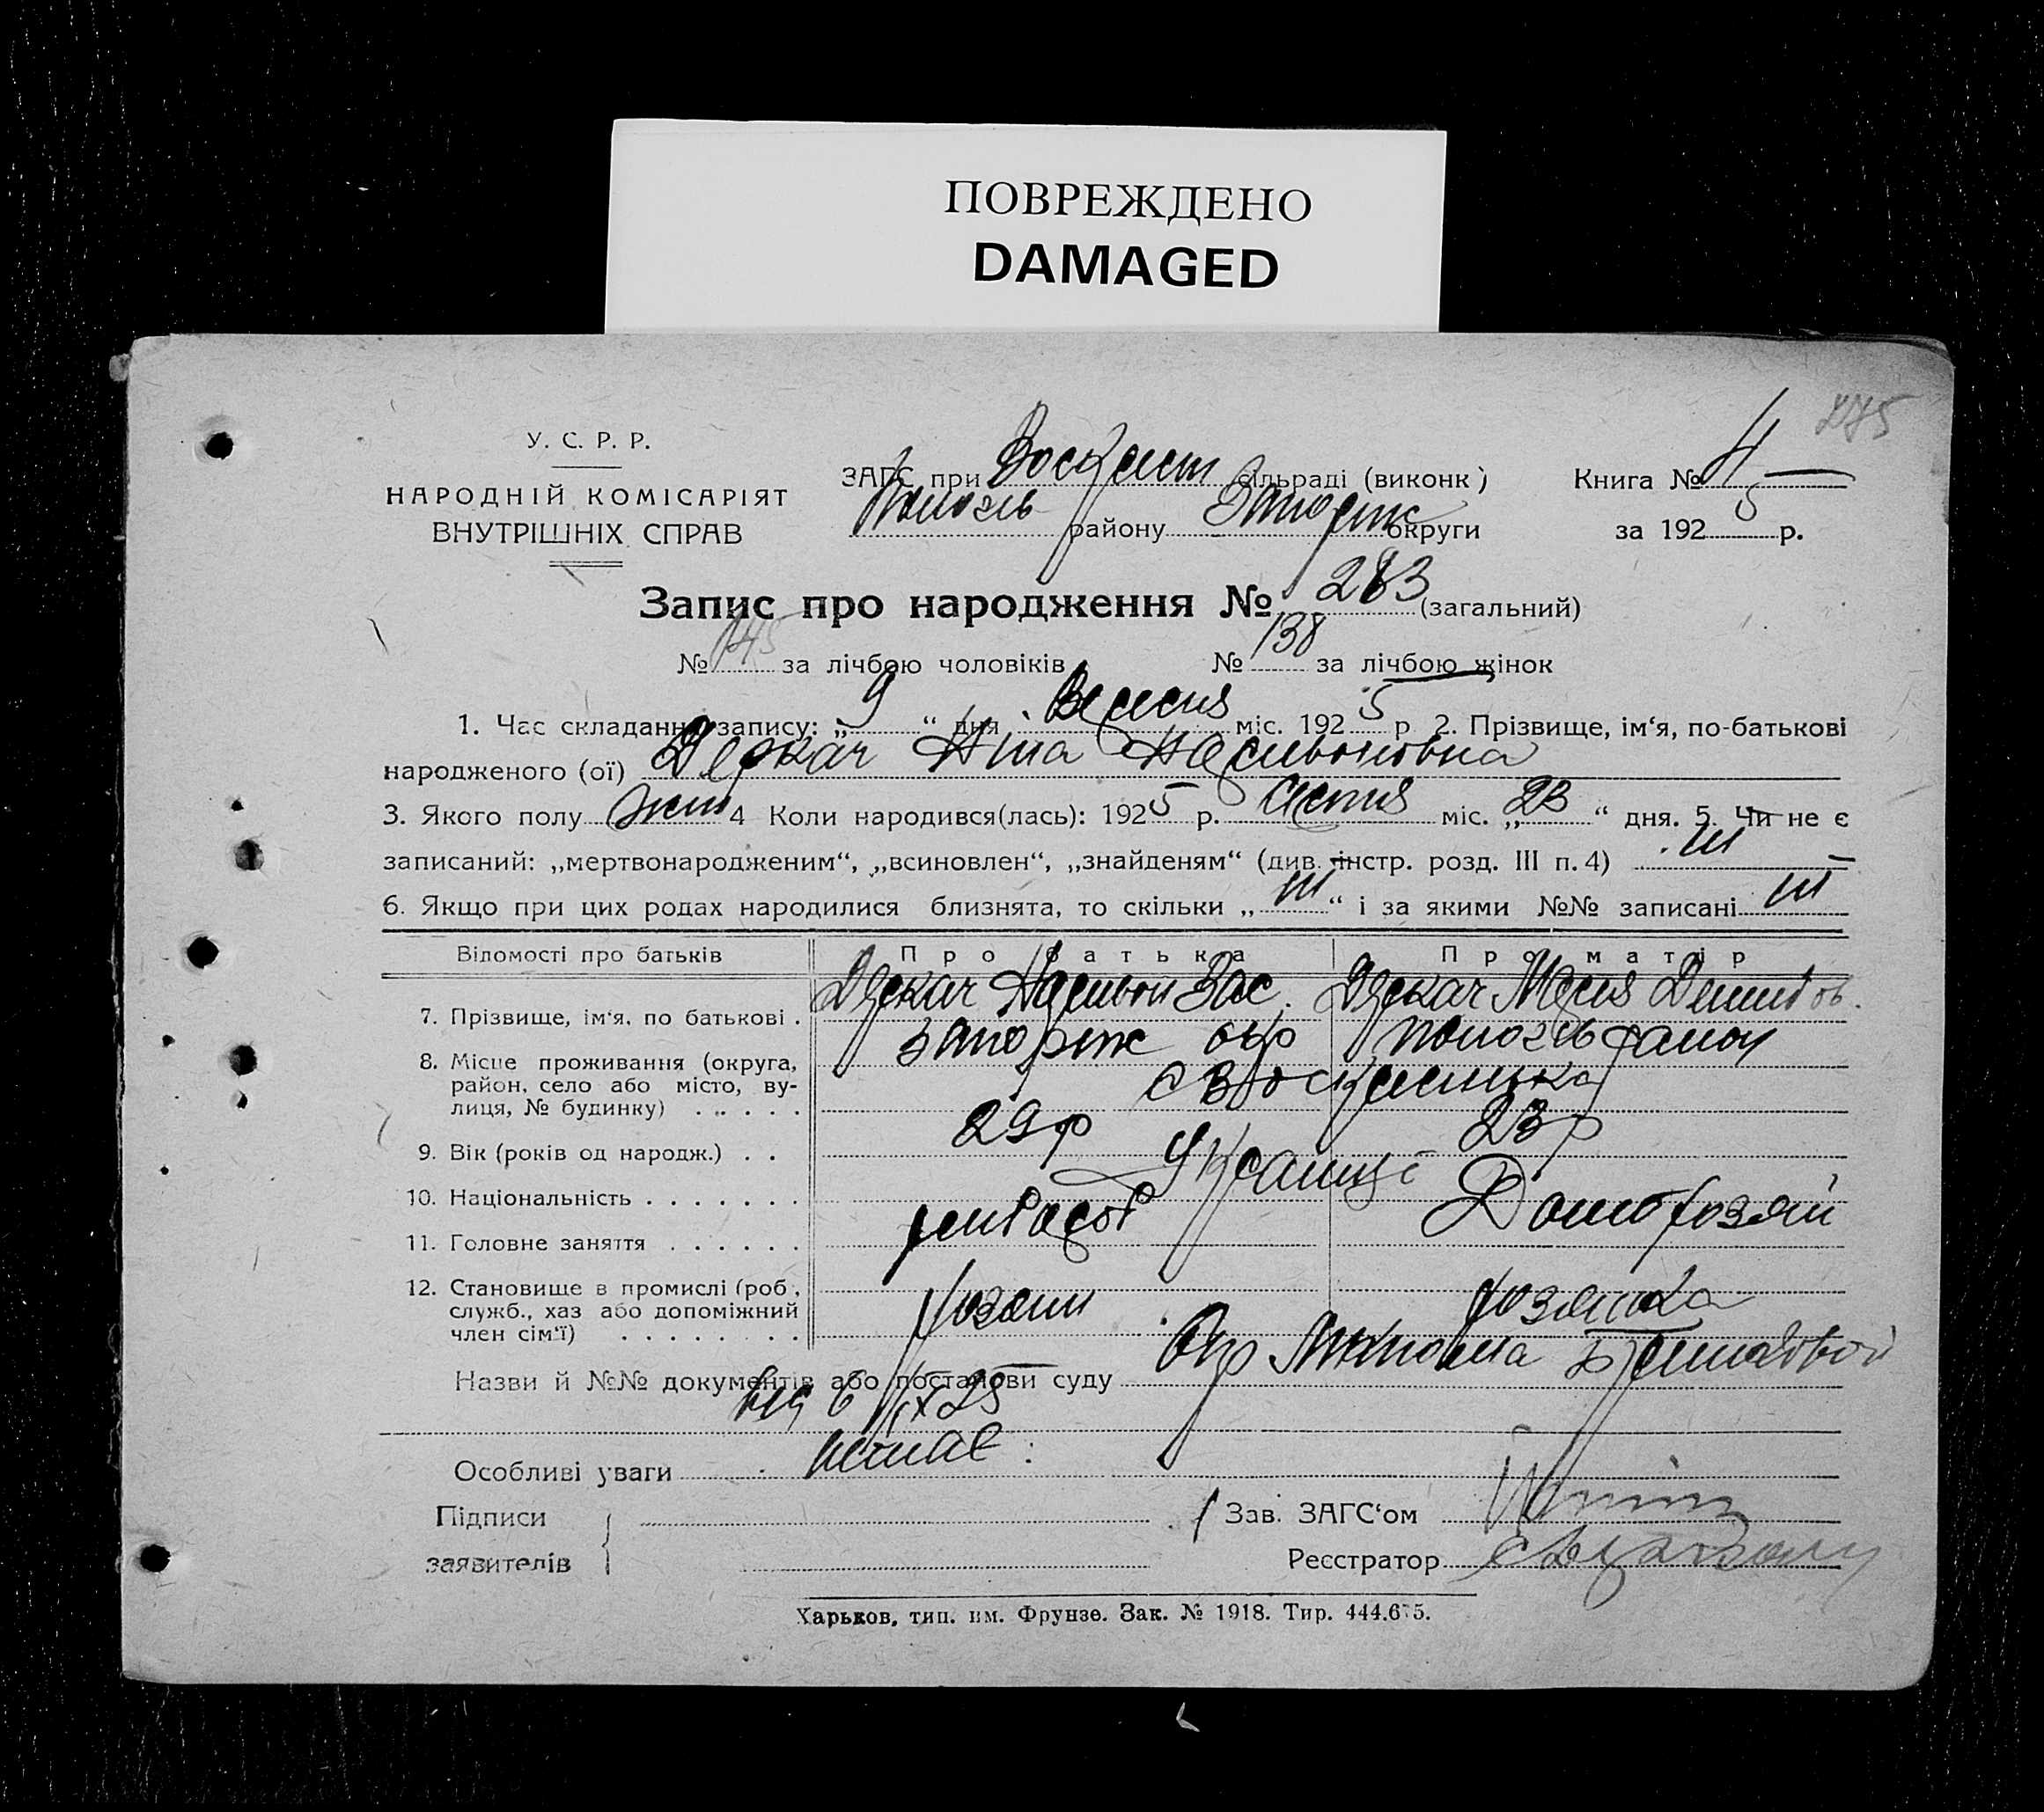 ПОВРЕЖДЕНО
DAMAGED
У. С. Р. Р.
НАРОДНІЙ КОМІСАРІЯТ
ВНУТРІШНІХ СПРАВ
ЗАГС при сільраді (виконк)
району округи
Книга №
за 1925 р.
Запис про народження № 283 (загальний)
№ 145 за лічбою чоловіків № 138 за лічбою жінок
1. Час складання запису: „9“ дня Вересня міс. 1925 р 2. Прізвище, ім'я, по-батькові
народженого (ої) Деркач
3. Якого полу жін 4 Коли народився(лась): 1925 р. міс. „23“ дня. 5. Чи не є
записаний: „мертвонародженим“, „всиновлен“, „знайденям“ (див. інстр. розд. III п. 4) ні
6. Якщо при цих родах народилися близнята, то скільки „ні“ і за якими №№ записані ні
Відомості про батьків Про батька Про матір
7. Прізвище, ім'я, по батькові . Деркач Вас. Деркач Марія Демидов.
8. Місце проживання (округа, Запоріж окр район
район, село або місто, ву-
лиця, № будинку) . . . . . с Воскресенка
9. Вік (років од народж.) . . 29 р 23 р
10. Національність . . . . . . . Українці
11. Головне заняття . . . . . . хлібороб Домохозяй
12. Становище в промислі (роб.,
служб., хаз або допоміжний хозяин хозяйка
член сім'ї) . . . . . . . .
Назви й №№ документів або постанови суду
від 6/IX 25
Особливі уваги немає
Підписи
заявителів
Зав. ЗАГС'ом
Реєстратор
Харьков, тип. им. Фрунзе. Зак. № 1918. Тир. 444.675.